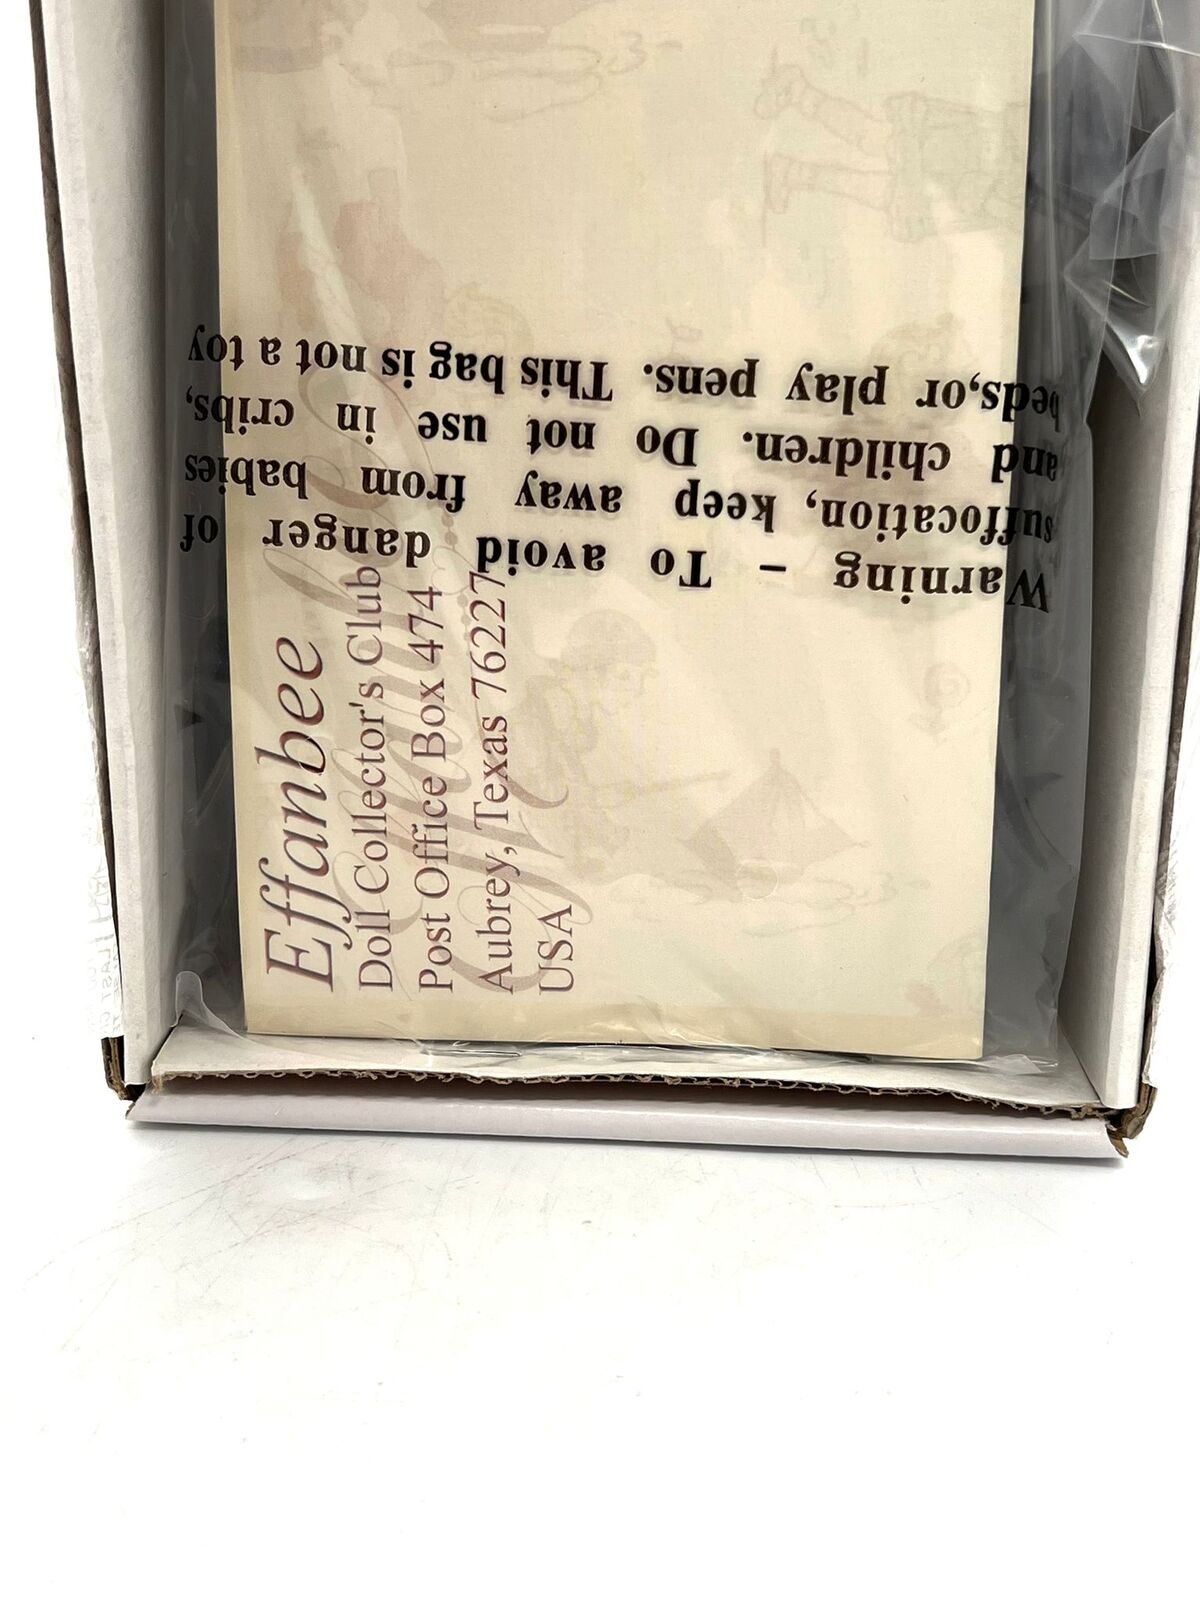 Warning - To avoid danger of
suffocation, keep away from babies
and children. Do not use in cribs,
beds,or play pens. This bag is not a toy
Effanbee
Doll Collector's Club
Post Office Box 474
Aubrey, Texas 76227
USA